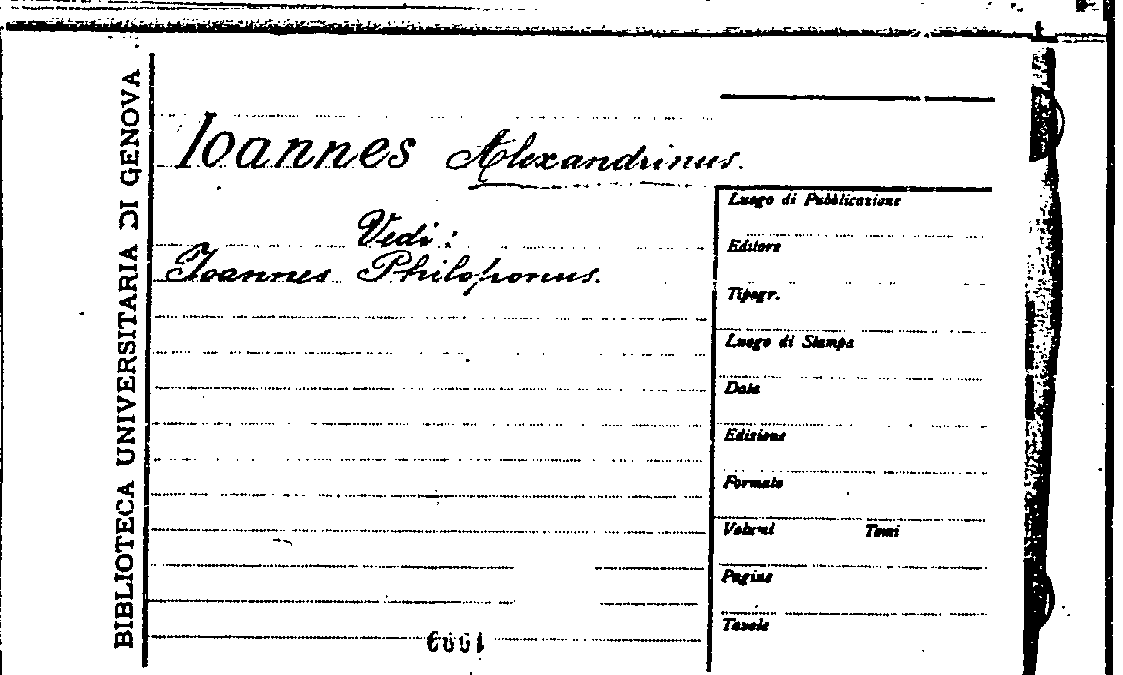 BIBLIOTECA UNIVERSITARIA DI GENOVA
Ioannes Alexandrinus.
Vedi:
Ioannes Philoponus.
Luogo di Pubblicazione
Editore
Tipogr.
Luogo di Stampa
Data
Edizione
Formato
Volumi Tomi
Pagine
Tavole